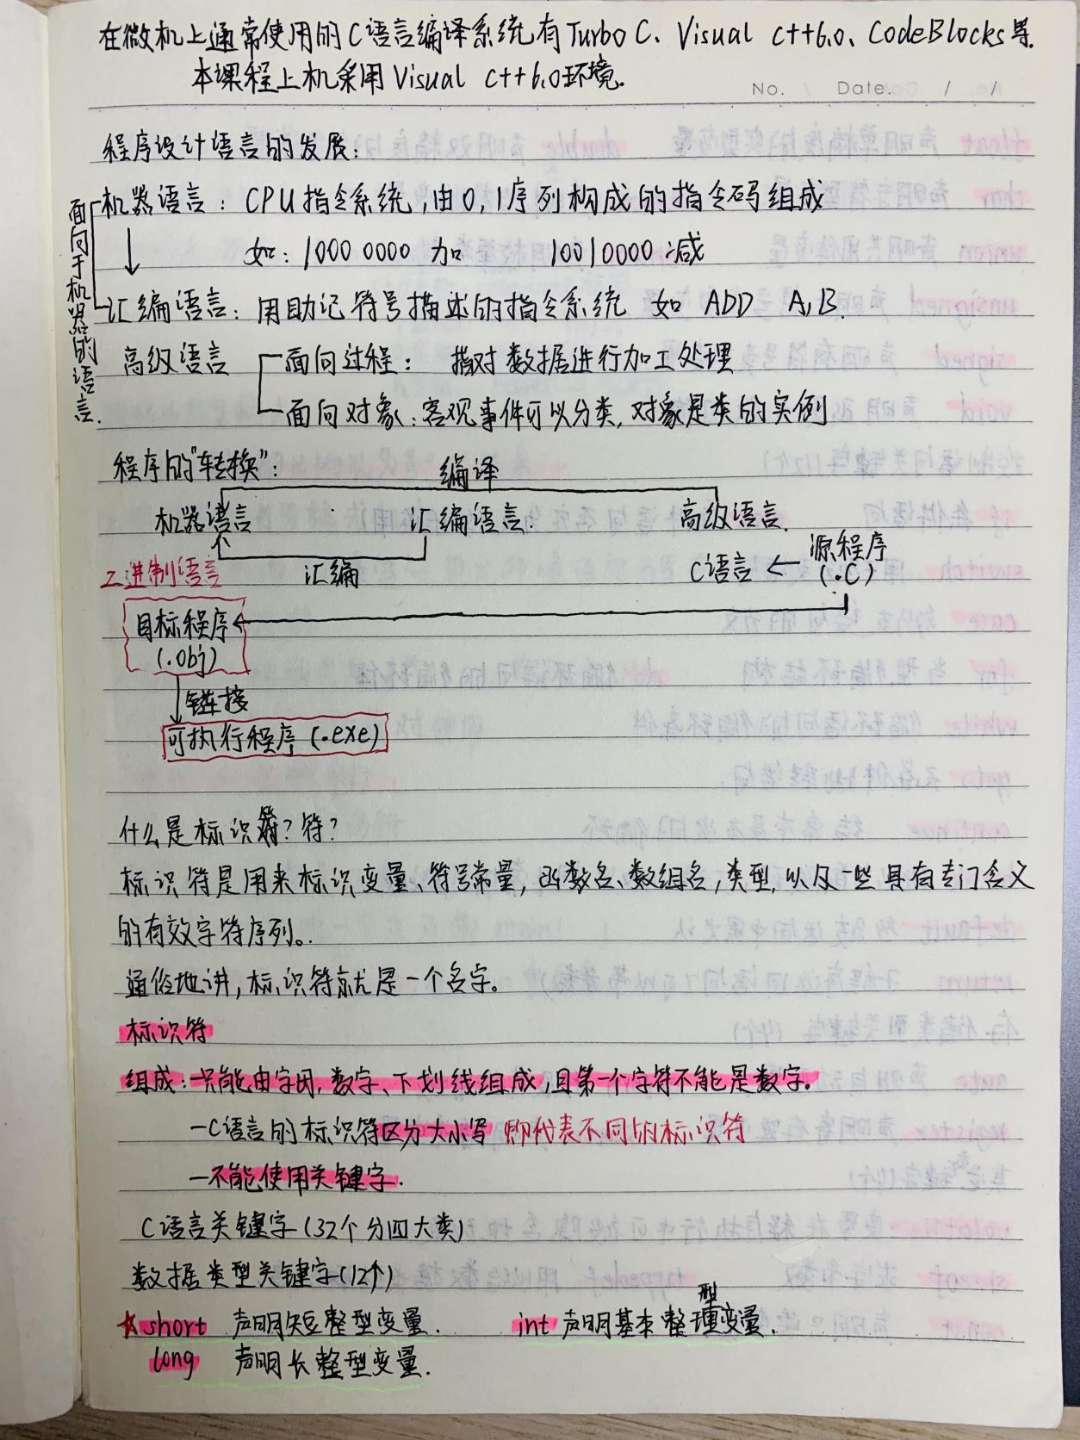 在微机上通常使用的C语言编译系统有Turbo C、Visual C++6.0、CodeBlocks等.
本课程上机采用Visual C++6.0环境.
No. Date. / /
程序设计语言的发展:
面向于机器的语言.
机器语言: CPU指令系统,由0,1序列构成的指令码组成
如: 1000 0000 加 10010000 减
汇编语言: 用助记符号描述的指令系统 如 ADD A,B.
高级语言 面向过程: 指对数据进行加工处理
面向对象: 客观事件可以分类, 对象是类的实例
程序的"转换":
编译
机器语言 汇编语言. 高级语言.
汇编
二进制语言 C语言 ← 源程序
(.C)
目标程序
(.obj)
链接
可执行程序 (.exe)
什么是标识符? 符?
标识符是用来标识变量、符号常量, 函数名、数组名, 类型, 以及一些具有专门含义
的有效字符序列。
通俗地讲, 标识符就是一个名字。
标识符
组成: 只能由字母, 数字、下划线组成, 且第一个字符不能是数字。
—C语言的标识符区分大小写 即代表不同的标识符
—不能使用关键字.
C语言关键字 (32个 分四大类)
数据类型关键字 (12个)
型
☆short 声明短整型变量. int 声明基本整理变量.
long 声明长整型变量.